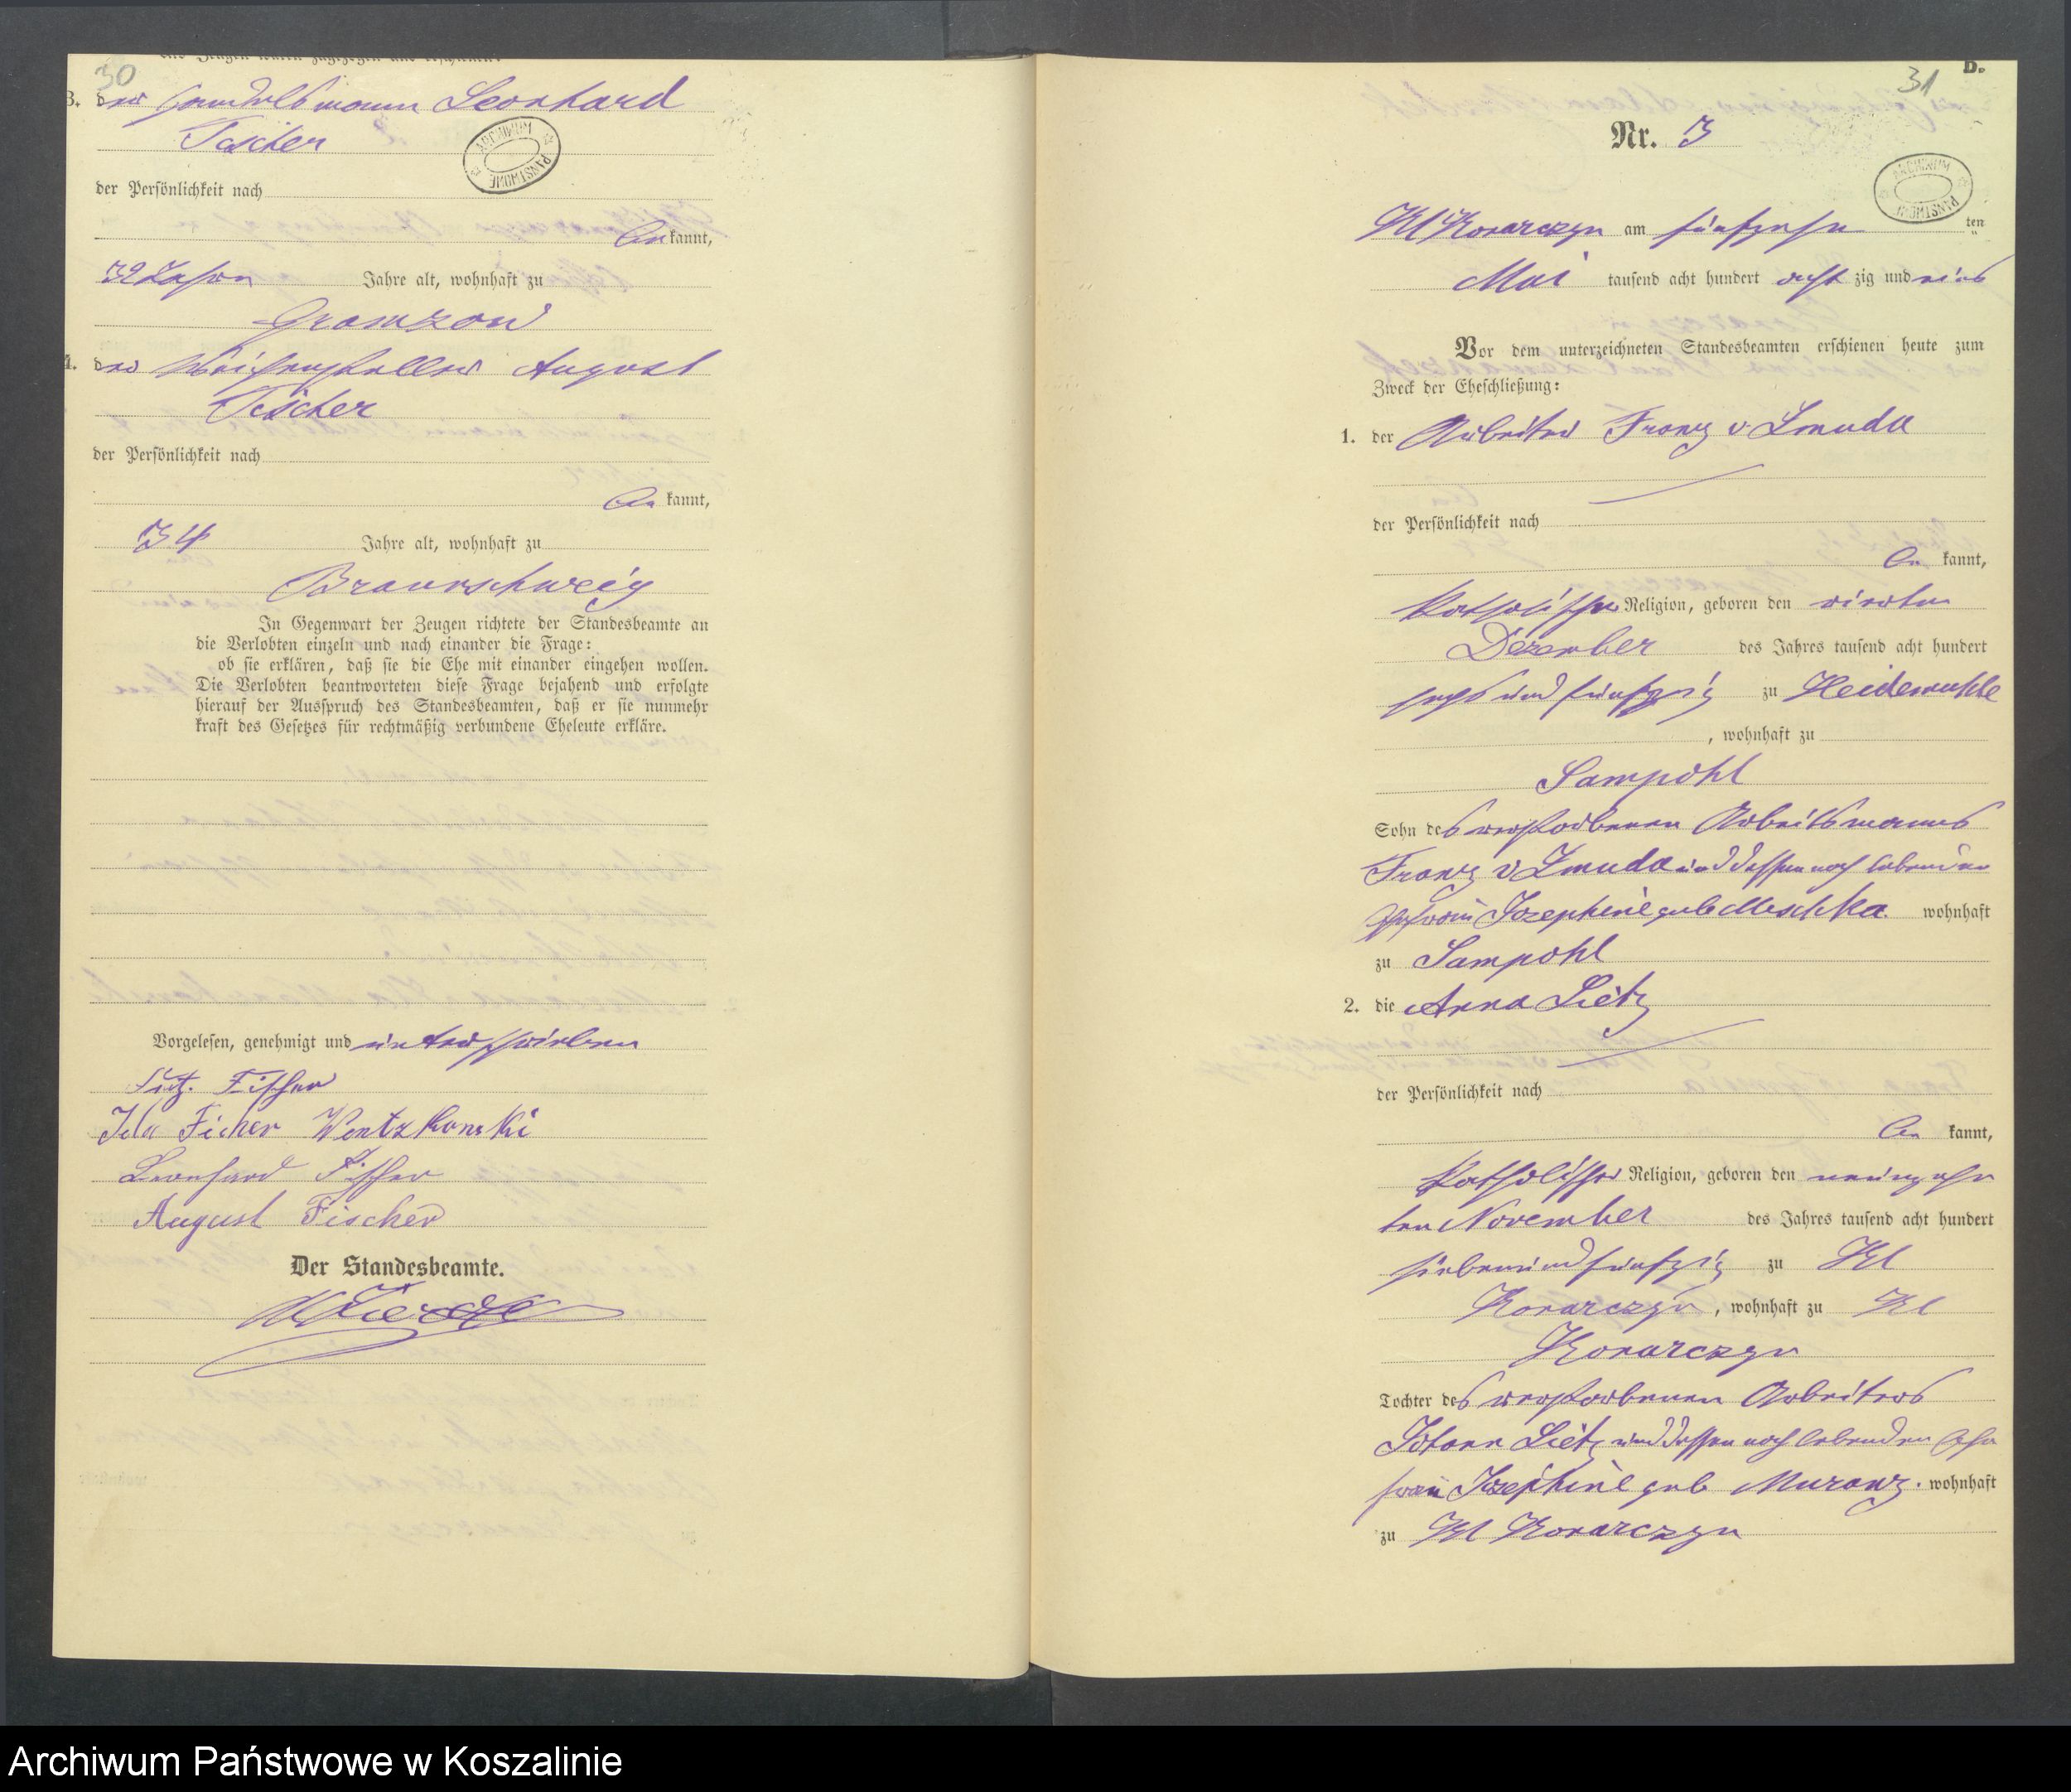 30
3. der Handelsmann Leonhard
Fischer
ARCHIWUM PAŃSTWOWE
der Persönlichkeit nach
be kannt,
32 Jahre Jahre alt, wohnhaft zu
Gramzow
4. der Weichensteller August
Fischer
der Persönlichkeit nach
be kannt,
34 Jahre alt, wohnhaft zu
Braunschweig
In Gegenwart der Zeugen richtete der Standesbeamte an
die Verlobten einzeln und nach einander die Frage:
ob sie erklären, daß sie die Ehe mit einander eingehen wollen.
Die Verlobten beantworteten diese Frage bejahend und erfolgte
hierauf der Ausspruch des Standesbeamten, daß er sie nunmehr
kraft des Gesetzes für rechtmäßig verbundene Eheleute erkläre.
Vorgelesen, genehmigt und unterschrieben
Fischer
Ida Ficher Wentzkowski
Leonhard Fischer
August Fischer
Der Standesbeamte.
31
B.
Nr. 3
ARCHIWUM PAŃSTWOWE
Kl Konarczyn am fünfzehn ten
Mai tausend acht hundert acht zig und eins
Vor dem unterzeichneten Standesbeamten erschienen heute zum
Zweck der Eheschließung:
1. der Arbeiter Franz v Zmuda
der Persönlichkeit nach
be kannt,
katholischer Religion, geboren den vierten
Dezember des Jahres tausend acht hundert
sechs und fünfzig zu Heidemühle
, wohnhaft zu
Sampohl
Sohn des verstorbenen Arbeitsmanns
Franz v Zmuda und dessen noch lebenden
Ehefrau Josephine geb Meschka wohnhaft
zu Sampohl
2. die Anna Lietz
der Persönlichkeit nach
be kannt,
katholischer Religion, geboren den neunzehn
ten November des Jahres tausend acht hundert
siebenundfünfzig zu Kl
Konarczyn, wohnhaft zu Kl
Konarczyn
Tochter des verstorbenen Arbeiters
Johann Lietz und dessen noch lebenden Ehe
frau Josephine geb Muranz. wohnhaft
zu Kl Konarczyn
Archiwum Państwowe w Koszalinie